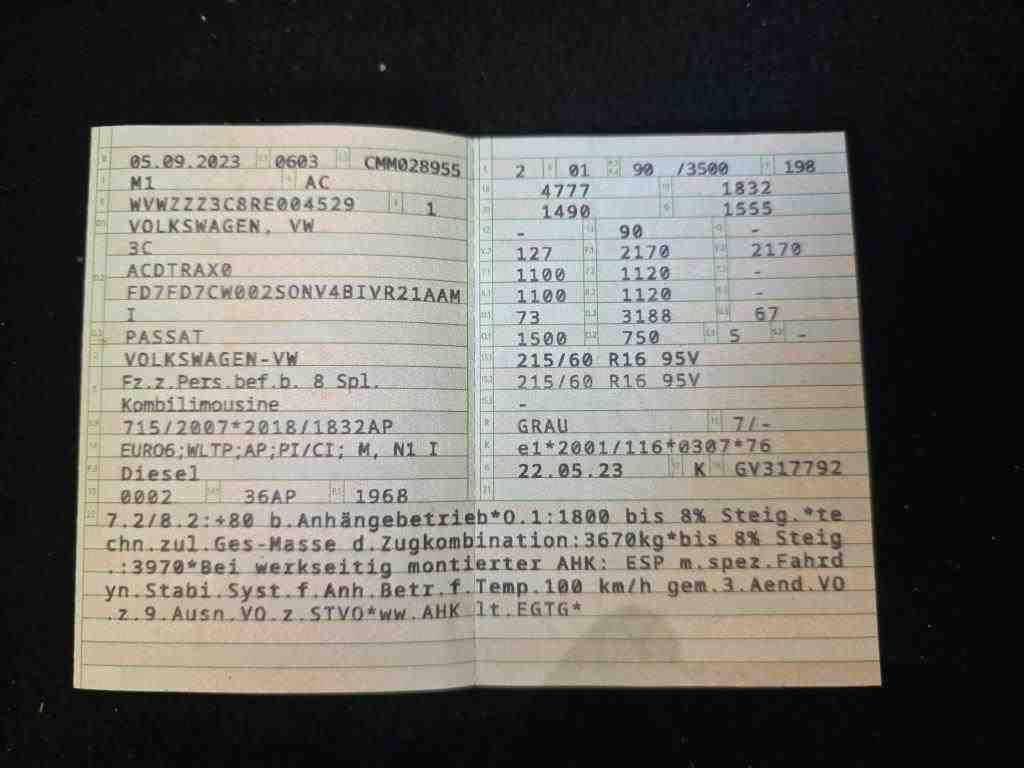 05.09.2023 0603 CMM028955
M1 AC
WVWZZZ3C8RE004529 1
VOLKSWAGEN, VW
3C
ACDTRAX0
FD7FD7CW002SONV4BIVR21AAM
I
PASSAT
VOLKSWAGEN-VW
Fz.z.Pers.bef.b. 8 Spl.
Kombilimousine
715/2007*2018/1832AP
EURO6;WLTP;AP;PI/CI; M, N1 I
Diesel
0002 36AP 1968
2 01 90 /3500 190
4777 1832
1490 1555
- 90 -
127 2170 2170
1100 1120 -
1100 1120 -
73 3188 67
1500 750 5 -
215/60 R16 95V
215/60 R16 95V
-
GRAU 7/-
e1*2001/116*0307*76
22.05.23 K GV317792
7.2/8.2:+80 b.Anhängebetrieb*O.1:1800 bis 8% Steig.*te
chn.zul.Ges-Masse d.Zugkombination:3670kg*bis 8% Steig
.:3970*Bei werkseitig montierter AHK: ESP m.spez.Fahrd
yn.Stabi.Syst.f.Anh.Betr.f.Temp.100 km/h gem.3.Aend.VO
.z.9.Ausn.VO.z.STVO*ww.AHK lt.EGTG*